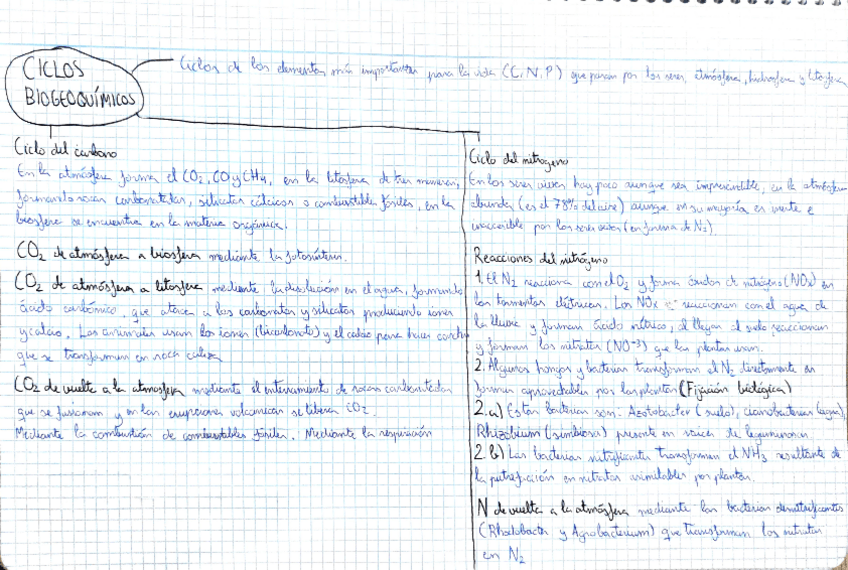 CICLOS
BIOGEOQUÍMICOS
Ciclos de los elementos más importantes para la vida (C, N, P) que pasan por los seres, atmósfera, hidrosfera y litosfera
Ciclo del carbono
En la atmósfera forma el CO2, CO y CH4, en la litosfera de tres maneras,
formando rocas carbonatadas, silicatos cálcicos o combustibles fósiles, en la
biosfera se encuentra en la materia orgánica.
CO2 de atmósfera a biosfera mediante la fotosíntesis.
CO2 de atmósfera a litosfera mediante la disolución en el agua, formando
ácido carbónico, que ataca a los carbonatos y silicatos produciendo iones
y calcio. Los animales usan los iones (bicarbonato) y el calcio para hacer conchas
que se transforman en roca caliza
CO2 de vuelta a la atmósfera mediante el enterramiento de rocas carbonatadas
que se fusionan y en las erupciones volcánicas se libera CO2.
Mediante la combustión de combustibles fósiles. Mediante la respiración
Ciclo del nitrógeno
En los seres vivos hay poco aunque sea imprescindible, en la atmósfera
abunda (es el 78% del aire) aunque en su mayoría es inerte e
inaccesible por los seres vivos (en forma de N2).
Reacciones del nitrógeno
1. El N2 reacciona con el O2 y forma óxidos de nitrógeno (NOx) en
las tormentas eléctricas. Los NOx reaccionan con el agua de
la lluvia y forman ácido nítrico, al llegar al suelo reaccionan
y forman los nitratos (NO-3) que las plantas usan.
2. Algunos hongos y bacterias transforman el N2 directamente en
formas aprovechables por las plantas (Fijación biológica)
2.a) Estas bacterias son: Azotobacter (suelo), cianobacterias (agua),
Rhizobium (simbiosis) presente en raíces de leguminosas.
2.b) Las bacterias nitrificantes transforman el NH3 resultante de
la putrefacción en nitratos asimilables por plantas.
N de vuelta a la atmósfera mediante las bacterias desnitrificantes
(Rhodobacter y Agrobacterium) que transforman los nitratos
en N2